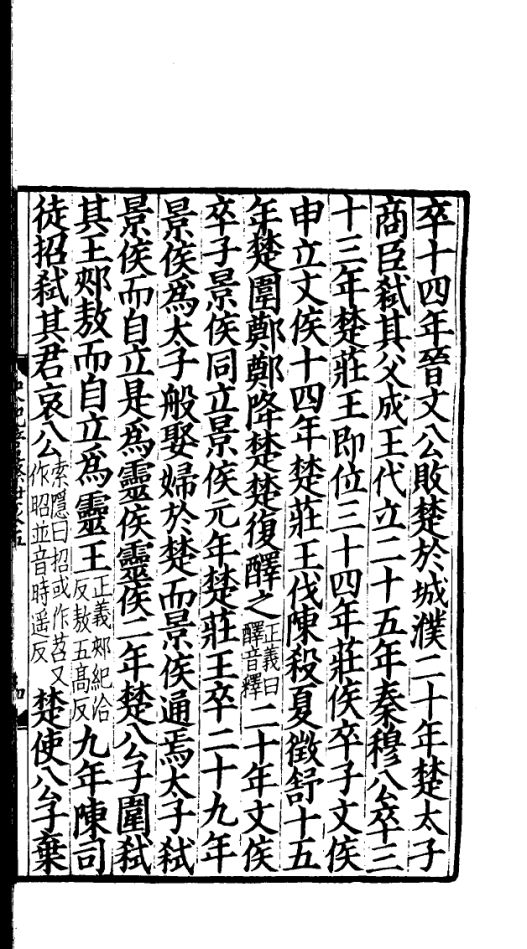 卒十四年晉文公敗楚於城濮二十年楚太子
商臣弑其父成王代立二十五年秦穆公卒三
十三年楚莊王即位三十四年莊侯卒子文侯
申立文侯十四年楚莊王伐陳殺夏徵舒十五
年楚圍鄭鄭降楚楚復醳之正義曰醳音釋二十年文侯
卒子景侯同立景侯元年楚莊王卒二十九年
景侯爲太子般娶婦於楚而景侯通焉太子弑
景侯而自立是爲靈侯靈侯二年楚公子圍弑
其王郟敖而自立爲靈王正義郟紀洽反敖五髙反九年陳司
徒招弑其君哀公索隱曰招或作苕又作昭並音時遥反楚使公子棄